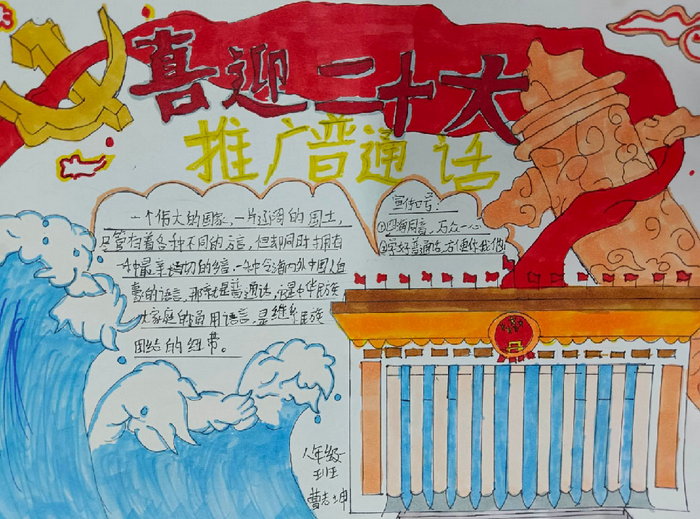 喜迎二十大
推广普通话
一个伟大的国家,一片辽阔的国土,
尽管有着各种不同的方言,但却同时拥有
一种最亲切的语言,一种令海内外中国人自
豪的语言,那就是普通话,它是中华民族
大家庭的通用语言,是维系民族
团结的纽带。
宣传口号:
①四海同音,万众一心
②学好普通话,方便你我他
八年级
班